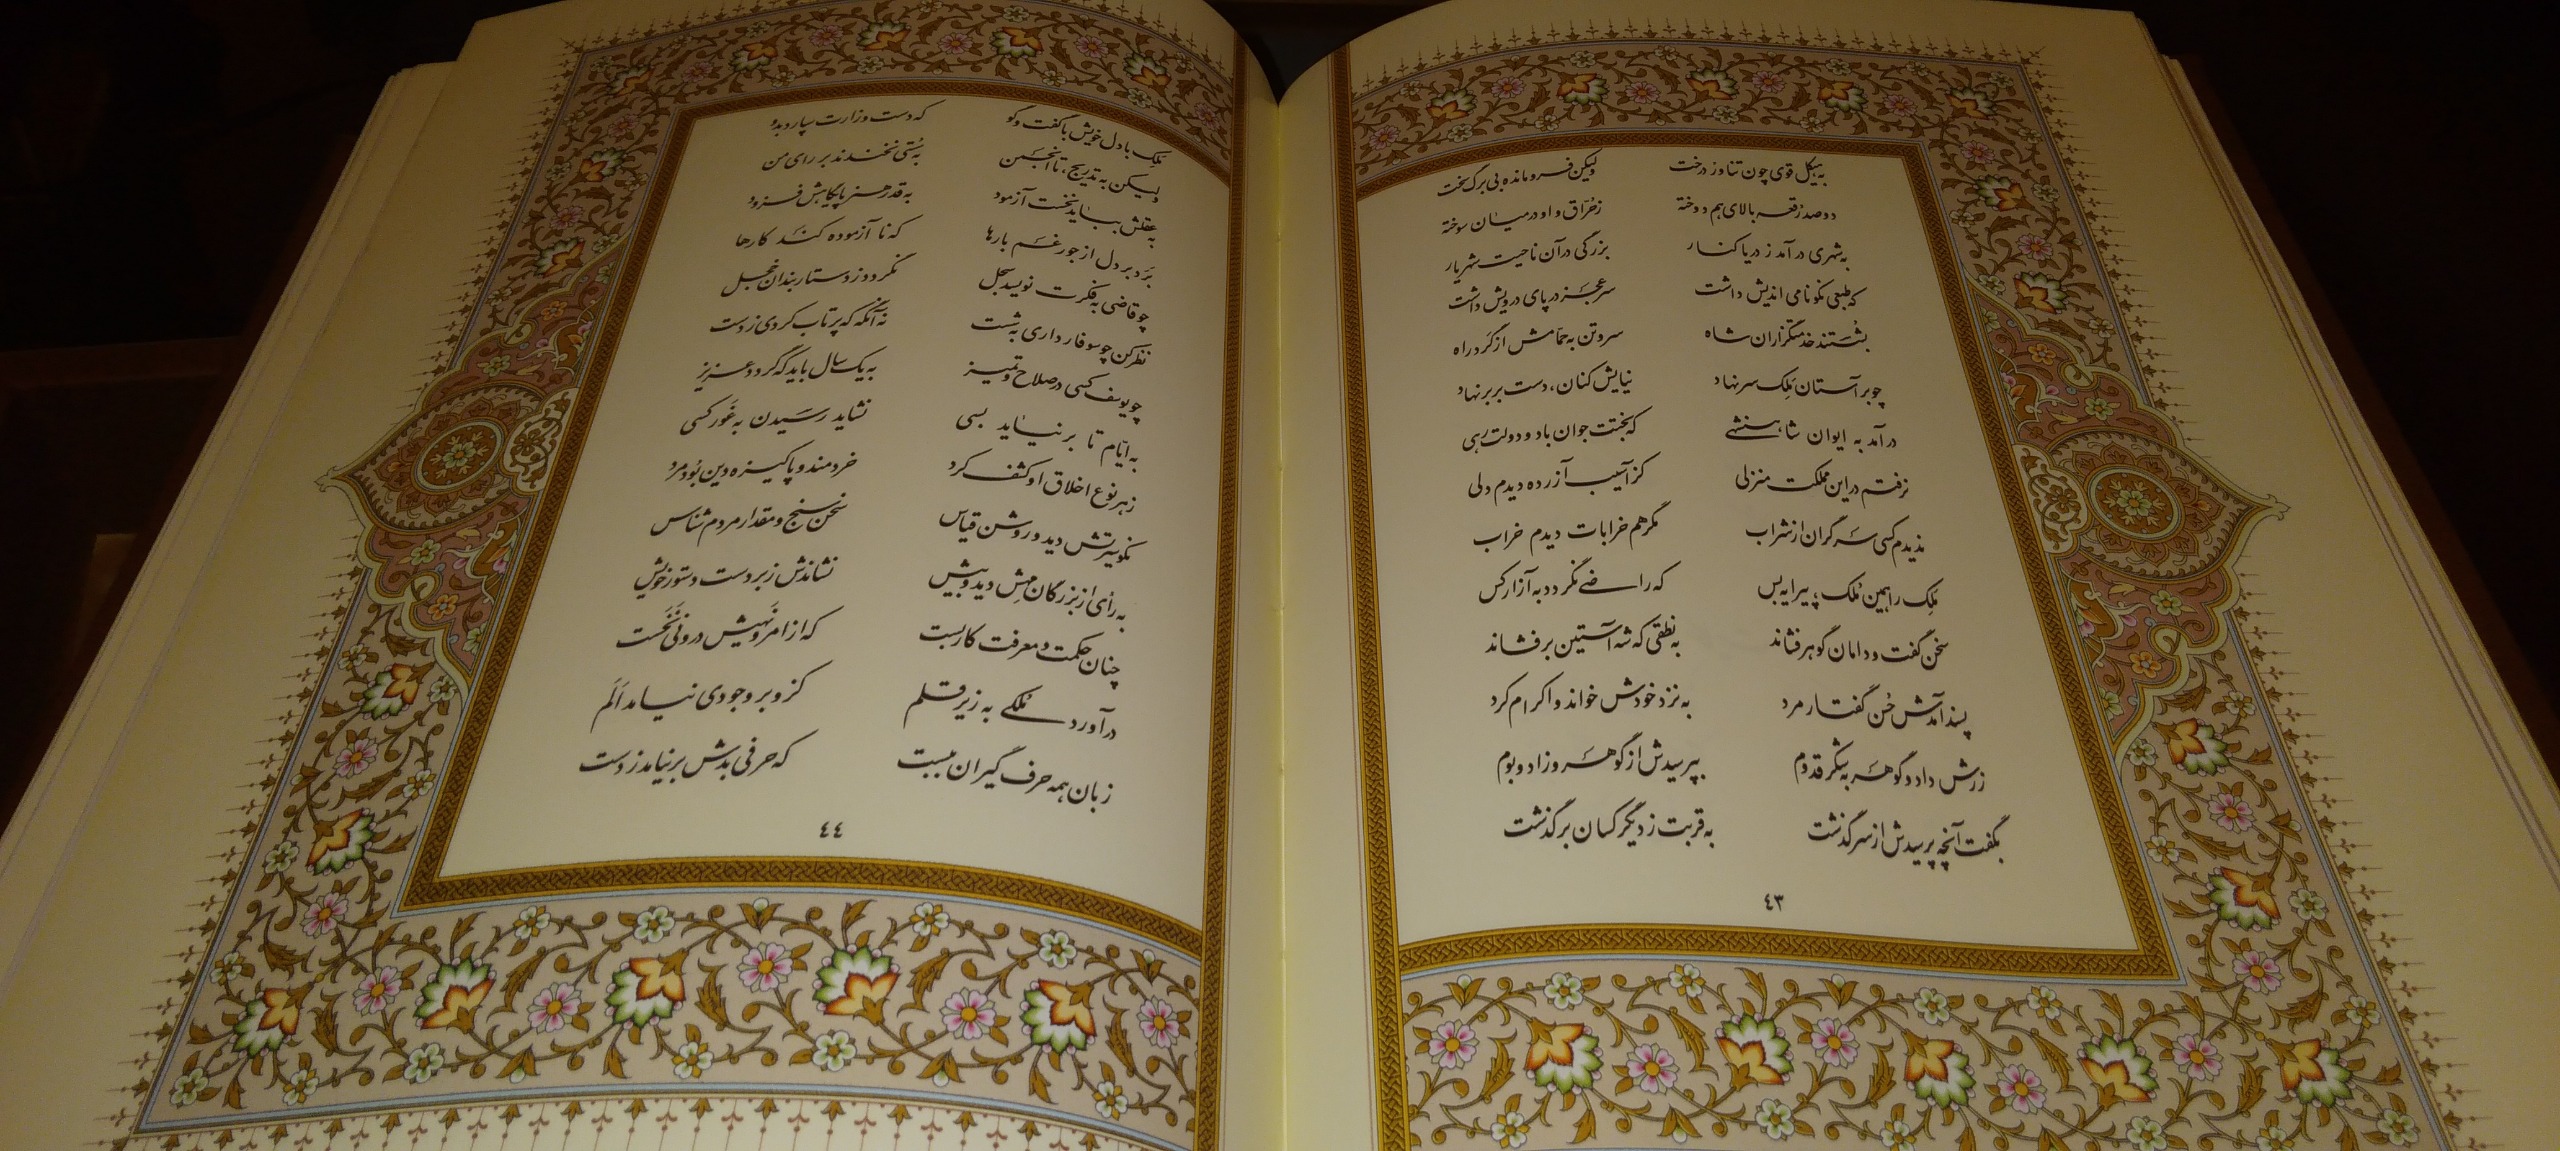 به هیکل قوی چون تناور درخت ولیکن فرومانده بی برگ سخت
دو صد رُقعه بالای هم دوخته ز حُرّاق و او در میان سوخته
به شهری درآمد ز دریا کنار بزرگی در آن ناحیت شهریار
که طبعی نکونامی اندیش داشت سر عجز در پای درویش داشت
بشُستند خدمتگزاران شاه سر و تن به حمّامش از گرد راه
چو بر آستان مَلِک سر نهاد نیایش کنان، دست بر بر نهاد
درآمد به ایوان شاهنشهی که بختت جوان باد و دولت رهی
نرفتم در این مملکت منزلی کز آسیب آزرده دیدم دلی
ندیدم کسی سرگران از شراب مگر هم خرابات دیدم خراب
مَلِک را همین مُلک پیرایه بس که راضی نگردد به آزار کس
سخن گفت و دامان گوهر فشاند به نطقی که شه آستین برفشاند
پسند آمدش حُسن گفتار مرد به نزد خودش خواند و اکرام کرد
زرش داد و گوهر به شکر قدوم بپرسیدش از گوهر و زاد و بوم
بگفت آنچه پرسیدش از سرگذشت به قربت ز دیگر کسان برگذشت
٤٣
مَلِک با دل خویش با گفت و گو که دست وزارت سپارد بدو
ولیکن به تدریج، تا انجمن به سُستی نخندند بر رای من
به عقلش بباید نخست آزمود به قدر هنر پایگاهش فزود
بَرَد بر دل از جور غم بارها که نا آزموده کند کارها
چو قاضی به فکرت نویسد سجل نگردد ز دستاربندان خجل
نظر کن چو سوفار داری به شست نه آنگه که پرتاب کردی ز دست
چو یوسف کسی در صلاح و تمیز به یک سال باید که گردد عزیز
به ایّام تا بر نیاید بسی نشاید رسیدن به غَور کسی
ز هر نوع اخلاق او کشف کرد خردمند و پاکیزه دین بُود مرد
نکو سیرتش دید و روشن قیاس سخن سنج و مقدار مردم شناس
به رأی از بزرگان مِهش دید و بیش نشاندش زبردست دستور خویش
چنان حکمت و معرفت کار بست که از امر و نهیش درونی نَخَست
درآورد مُلکی به زیر قلم کز و بر وجودی نیامد اَلَم
زبان همه حرف گیران ببست که حرفی بدش بر نیامد ز دست
٤٤